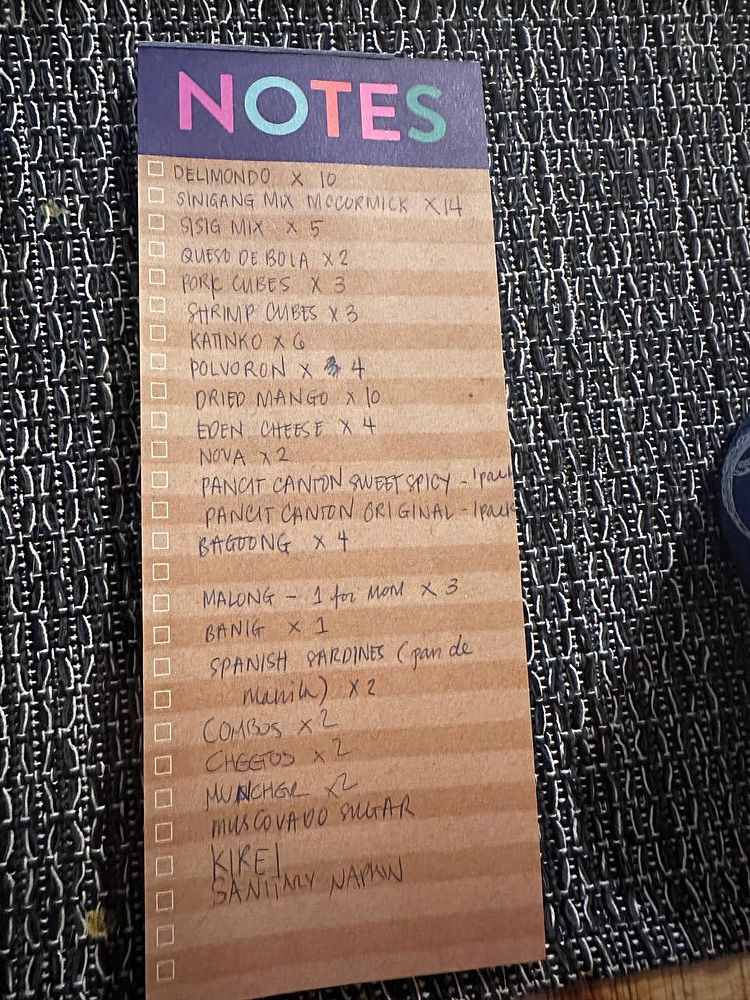 NOTES
DELIMONDO X 10
SINIGANG MIX MCCORMICK X 14
SISIG MIX X 5
QUESO DE BOLA X 2
PORK CUBES X 3
SHRIMP CUBES X 3
KATINKO X 6
POLVORON X 4
DRIED MANGO X 10
EDEN CHEESE X 4
NOVA X 2
PANCIT CANTON SWEET SPICY - 1 pack
PANCIT CANTON ORIGINAL - 1 pack
BAGOONG X 4
MALONG - 1 for MOM X 3
BANIG X 1
SPANISH SARDINES (pan de
manila) X 2
COMBOS X 2
CHEETOS X 2
MUNCHER X2
MUSCOVADO SUGAR
KIREI
SANITARY NAPKIN